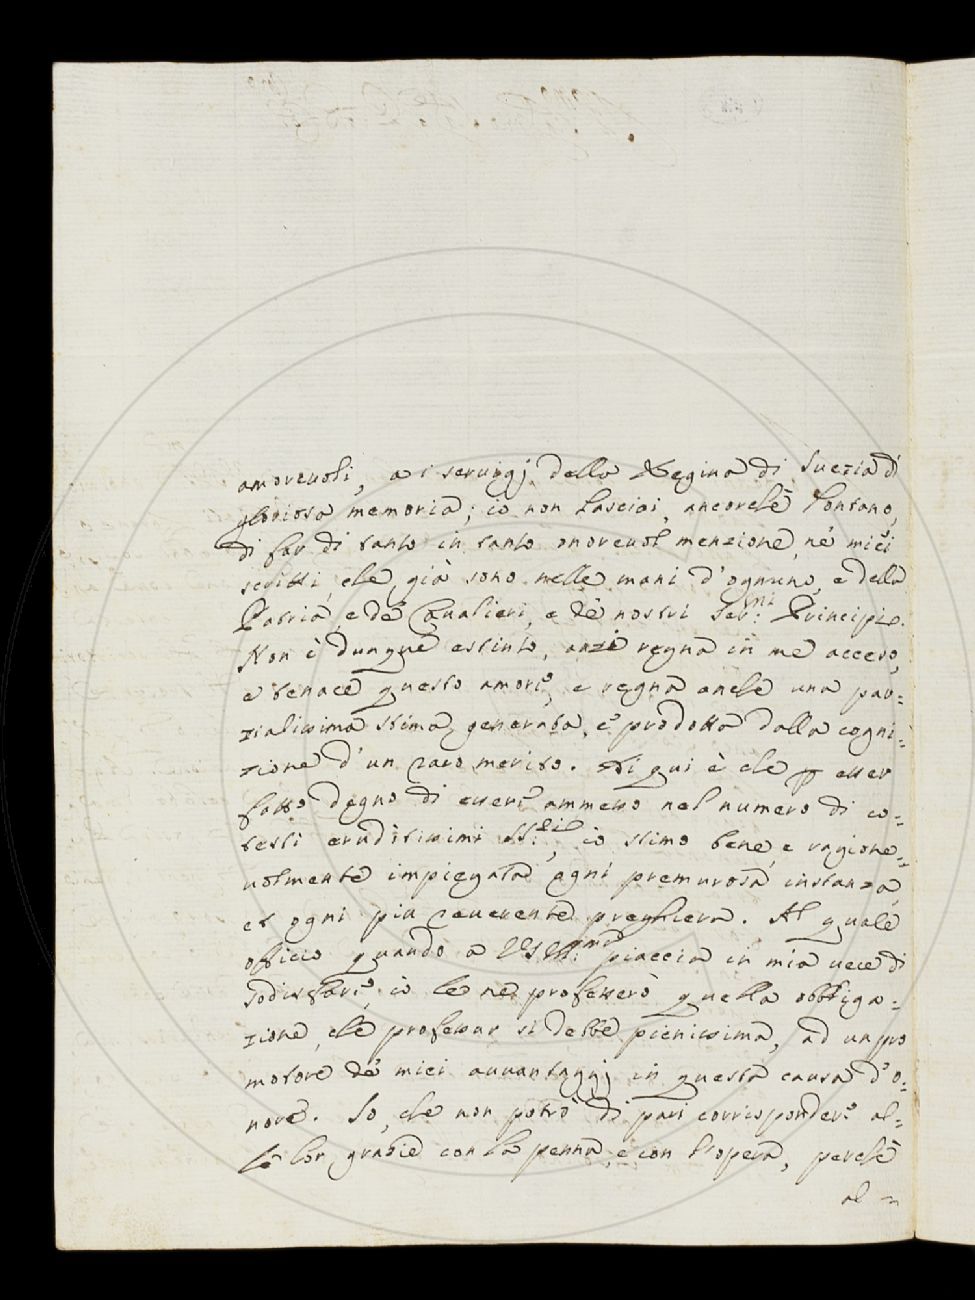 amorevoli, a i servigj della Regina di Suezia di
gloriosa memoria; io non lasciai, ancorchè lontano,
di far di tanto in tanto onorevol menzione ne' miei
scritti, che già sono nelle mani d'ognuno, e della
Patria, e de' Cavalieri, e de' nostri Ser:mi Principi.
Non è dunque estinto, anzi regna in me acceso,
e tenace questo amore, e regna anche una par-
zialissima stima generata, e prodotta dalla cogni-
zione d'un raro merito. Di qui è che p esser
fatto degno di essere ammesso nel numero di co-
testi eruditissimi io stimo bene, e ragione-
volmente impiegata ogni premurosa instanza,
et ogni più reverente preghiera. Al quale
officio quando a piaccia in mia vece di
sodisfare, io le ne professerò quella obbliga-
zione, che professar si debbe pienissima, ad un pro
motore de' miei avvantaggj in questa causa d'o-
nore. So, che non potrò di pari corrispondere al-
le lor grazie con la penna, e con l'opera, perchè
al-